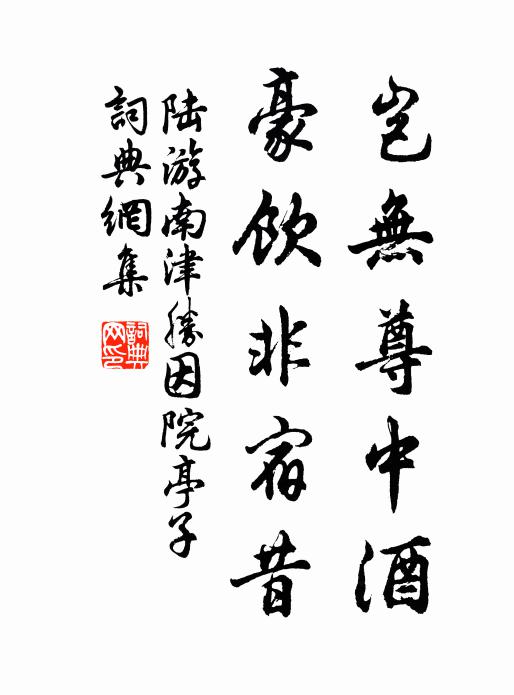 豈無尊中酒
豪飲非宿昔
陆游南津勝因院亭子
詞典網集
詞典网印